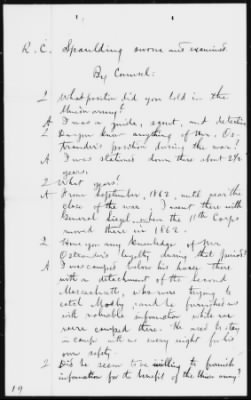 R. C. Spaulding sworn and examined.
By Counsel:
Q What position did you hold in the
Union army?
A I was a guide, agent, and detective
Q Do you know anything of Mr. Os-
trander's position during the war?
A I was stationed down there about 2½
years.
Q What years?
A From September, 1862, until near the
close of the war. I went there with
General Sigel, when the 11th Corps
moved there in 1862.
Q Have you any knowledge of Mr
Ostrander's loyalty during that period?
A I was camped below his house there
with a detachment of the Second
Massachusetts, who were trying to
catch Mosby, and he furnished us
with valuable information while we
were camped there. He used to stay
in camp with us every night for his
own safety.
Q Did he seem to be willing to furnish
information for the benefit of the Union army?
19